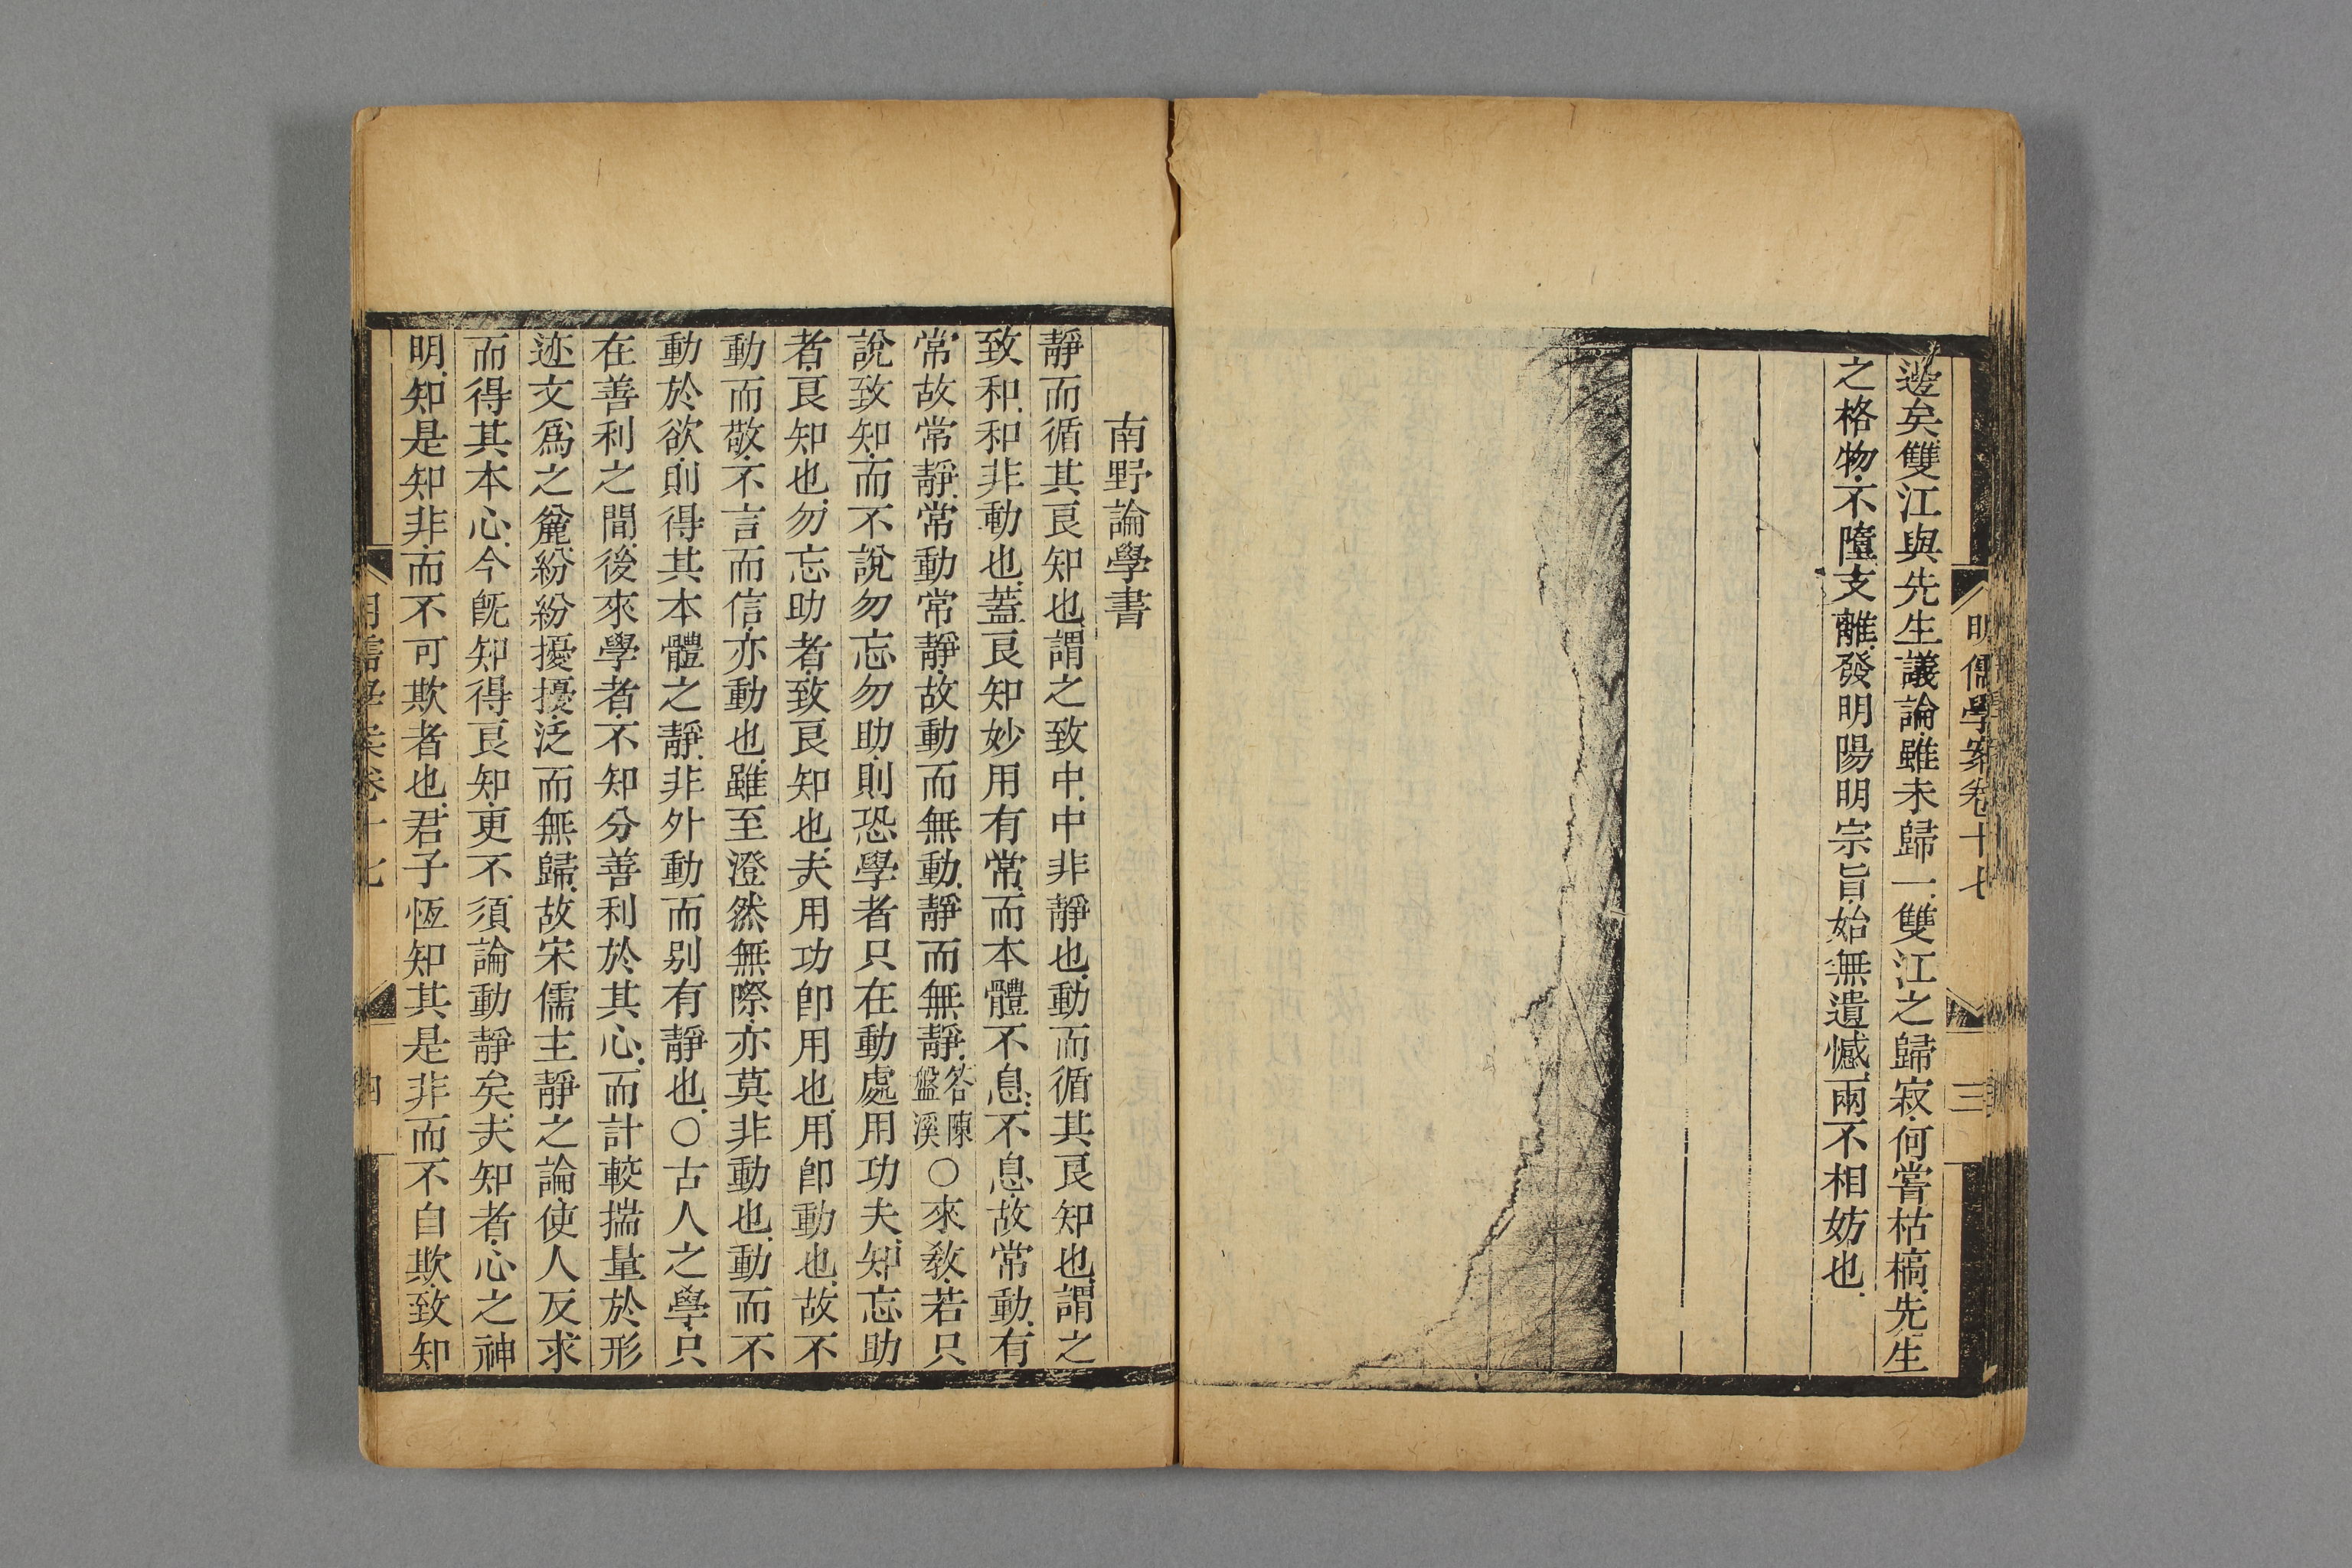 明儒學案卷十七
三
邊矣雙江與先生議論雖未歸一雙江之歸寂何嘗枯槁先生
之格物不墮支離發明陽明宗旨始無遺憾兩不相妨也
南野論學書
靜而循其良知也謂之致中中非靜也動而循其良知也謂之
致和和非動也蓋良知妙用有常而本體不息不息故常動有
常故常靜常動常靜故動而無動靜而無靜答陳盤溪○來敎若只
說致知而不說勿忘勿助則恐學者只在動處用功夫知忘助
者良知也勿忘助者致良知也夫用功卽用也用卽動也故不
動而敬不言而信亦動也雖至澄然無際亦莫非動也動而不
動於欲則得其本體之靜非外動而别有靜也○古人之學只
在善利之間後來學者不知分善利於其心而計較揣量於形
迹文爲之麄紛紛擾擾泛而無歸故宋儒主靜之論使人反求
而得其本心今旣知得良知更不須論動靜矣夫知者心之神
明知是知非而不可欺者也君子恆知其是非而不自欺致知
明儒學案卷十七
四